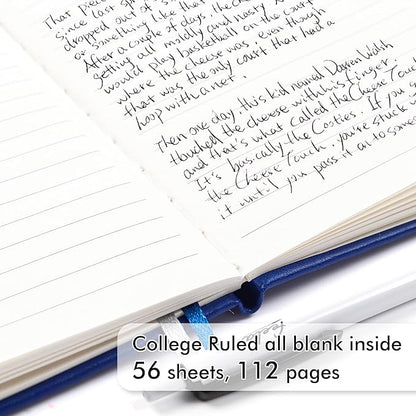 That
Since last sp
dropped out of s
or something like that
After a couple of days the chee
getting all moldy and nasty. N
would play basketball on the court
where the cheese was, even though
that was the only court that had a
hoop with a net.
Then one day, this kid named Darren Walsh
touched the cheese with his finger,
and that's what called the Cheese Touc
It's basically the Cooties. If you g
the Cheese Touch, you're stuck
it until you pass it on to someo
College Ruled all blank inside
56 sheets, 112 pages